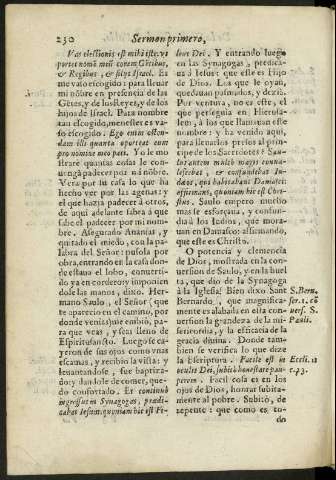 230 Sermon primero,
Vas electionis est mihi iste: vt
portet nomē meū coram Gētibus,
& Regibus, & filys Israel. Es
me vaso escogido: para lleuar
mi nōbre en presencia de las
Gētes, y de los Reyes, y de los
hijos de Israel. Para nombre
tan escogido, menester es va-
so escogido. Ego enim osten-
dam illi quanta oporteat eum
pro nomine meo pati. Yo le mo
straré quantas cosas le conue-
nga padecer por mi nōbre.
Vera por su casa lo que ha
hecho ver por las agenas: y
el que hazia padecer à otros,
de aqui adelante sabrá à que
sabe el padecer por mi nom-
bre. Asegurado Ananias, y
quitado el miedo, con la pa-
labra del Señor: pusola por
obra, entrando en la casa don-
de estaua el lobo, conuerti-
do ya en cordero: y imponien
dole las manos, dixo. Her-
mano Saulo, el Señor (que
te aparecio en el camino, por
donde venias) me embiò, pa-
ra que veas, y seas lleno de
Espiritusancto. Luego se ca-
yeron de sus ojos como vnas
escamas, y recibio la vista: y
leuantandose, fue baptiza-
do: y dandole de comer, que-
do confortado. Et continuò
ingressus in Synagogas, prædi-
cabat Iesum: quoniam hic est Fi-
lius Dei. Y entrando luego
en las Synagogas, predica-
ua à Iesus: que este es Hijo
de Dios. Los que le oyan,
quedauan pasmados, y dezia.
Por ventura, no es este, el
que perseguia en Hierusa-
lem, à los que llamauan este
nombre: y ha venido aqui,
para lleuarlos presos al prin-
cipe de los Sacerdotes? Sau-
lus autem multò magis conua-
lescebat, & confundebat Iu-
dæos, qui habitabant Damasci:
affirmans, quoniam hic est Chri-
stus. Saulo empero mucho
mas se esforçaua, y confun-
dia à los Iudios, que mora-
uan en Damasco: affirmando,
que este es Christo.
O potencia y clemencia
de Dios, mostrada en la con-
uersion de Saulo, y en la buel
ta, que dio de la Synagoga
à la Iglesia! Bien dixo Sant
Bernardo, que magnifica-
mente es alabada en esta con-
uersion la grandeza de la mi-
sericordia, y la efficacia de la
gracia diuina. Donde tam-
bien se verifica lo que dize
la Escriptura. Facile est in
oculis Dei, subitò honestare pau-
perem. Facil cosa es en los
ojos de Dios, honrar subita-
mente al pobre. Subitò, de
repente: que como es to-
do
S. Bern.
ser. 1. cō
uers. S.
Pauli.
Eccli. 11